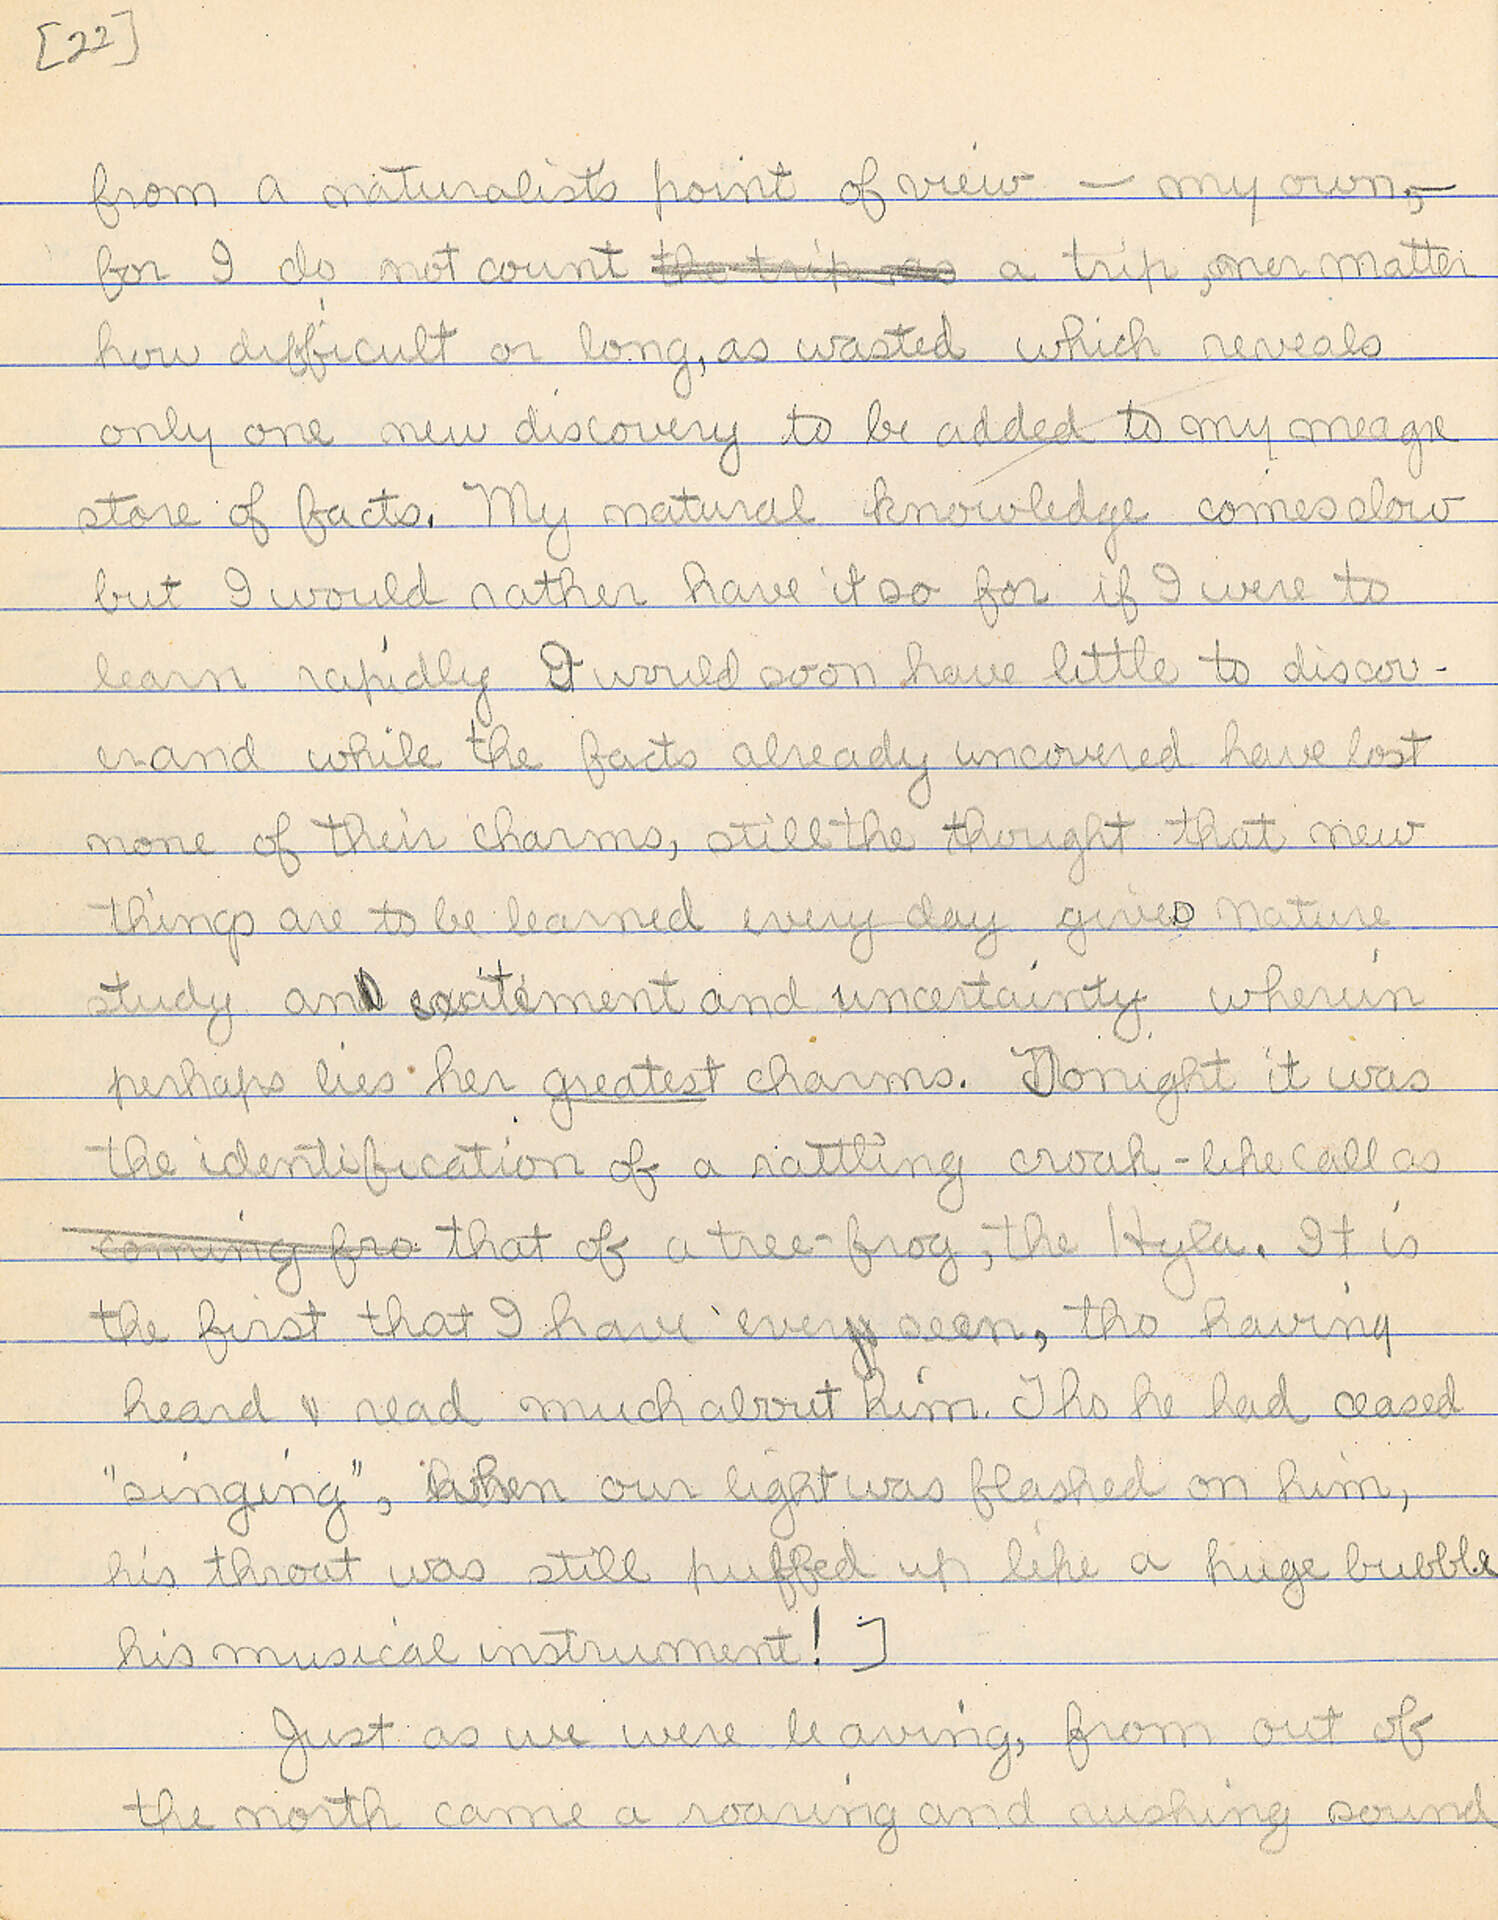 [22]
from a naturalists point of view — my own, —
for I do not count the trip as a trip, no matter
how difficult or long, as wasted which reveals
only one new discovery to be added to my meagre
store of facts. My natural knowledge comes slow
but I would rather have it so for if I were to
learn rapidly I would soon have little to discov-
er and while the facts already uncovered have lost
none of their charms, still the thought that new
things are to be learned every day gives Nature
study an excitement and uncertainty wherein
perhaps lies her greatest charms. Tonight it was
the identification of a rattling croak-like call as
coming fro that of a tree-frog, the Hyla. It is
the first that I have ever seen, tho having
heard & read much about him. Tho he had ceased
"singing", when our light was flashed on him,
his throat was still puffed up like a huge bubble
his musical instrument! ]
Just as we were leaving, from out of
the north came a roaring and rushing sound